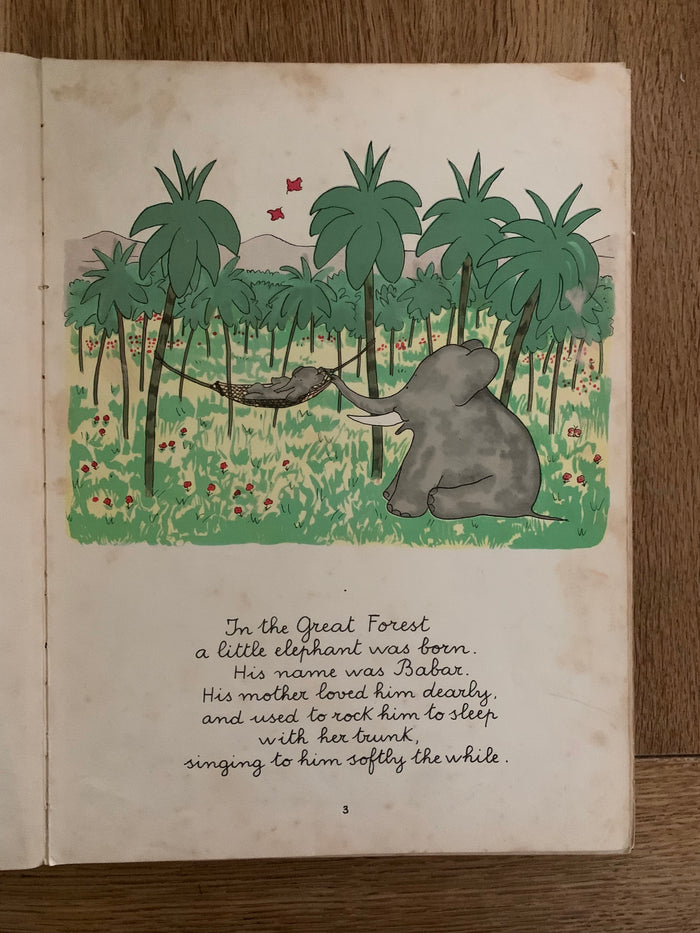 In the Great Forest
a little elephant was born.
His name was Babar.
His mother loved him dearly,
and used to rock him to sleep
with her trunk,
singing to him softly the while.
3